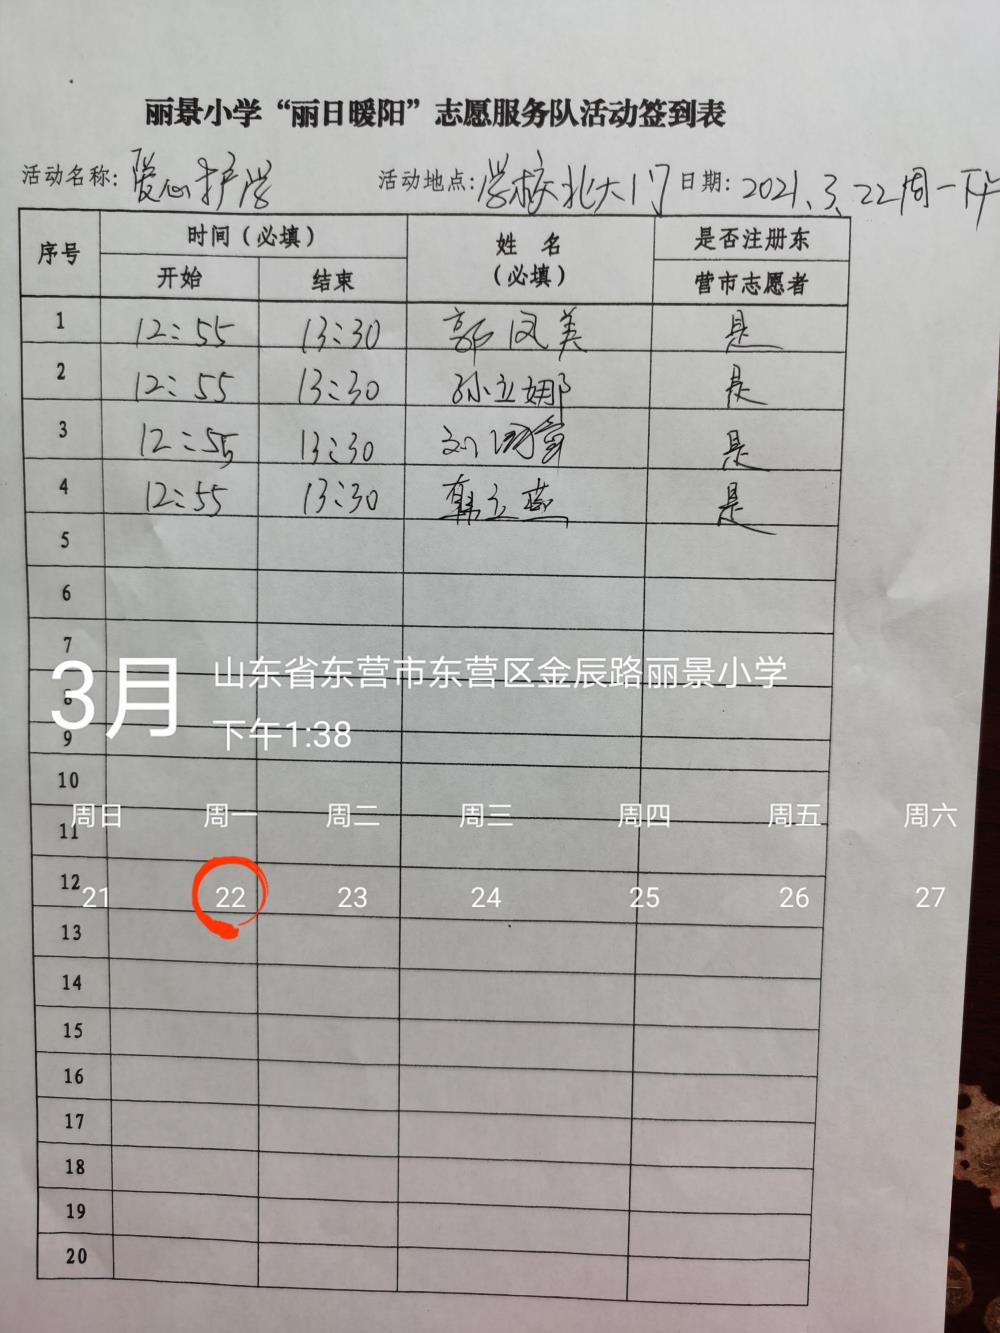 丽景小学“丽日暖阳”志愿服务队活动签到表
活动名称: 爱心护学 活动地点: 学校北大门 日期: 2021.3.22周一下午
序号 时间(必填) 姓名(必填) 是否注册东营市志愿者
开始 结束
1 12:55 13:30 郭凤美 是
2 12:55 13:30 孙立娜 是
3 12:55 13:30 刘 是
4 12:55 13:30 韩立燕 是
5
6
7
3月 山东省东营市东营区金辰路丽景小学
8
下午1:38
9
10
周日 周一 周二 周三 周四 周五 周六
11
12
21 22 23 24 25 26 27
13
14
15
16
17
18
19
20